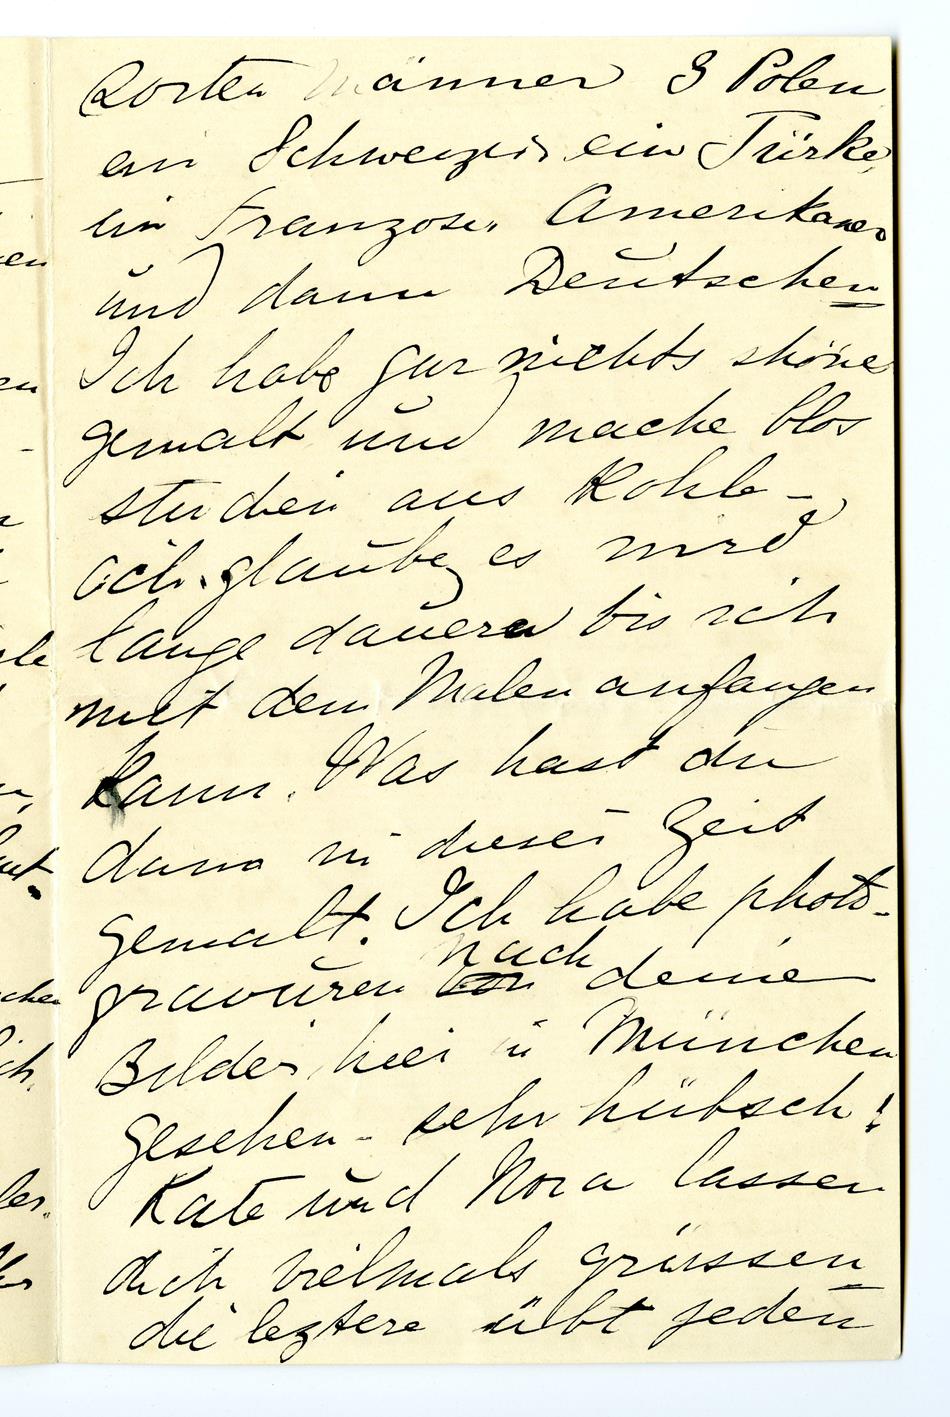 Sorten Männer 3 Polen
ein Schweizer, ein Türke,
ein Franzose, Amerikaner
und dann Deutschen
Ich habe gar nichts shöne
gemalt und mache blos
studien aus Kohle –
ich glaube es wird
lange dauern bis ich
mit dem Malen anfangen
kann. Was hast du
dann in dieser Zeit
gemalt. Ich habe photo-
gravuren nach deine
Bilder hier in München
gesehen – sehr hübsch!
Kate und Nora lassen
dich vielmals grüssen
die leztere übt jeden